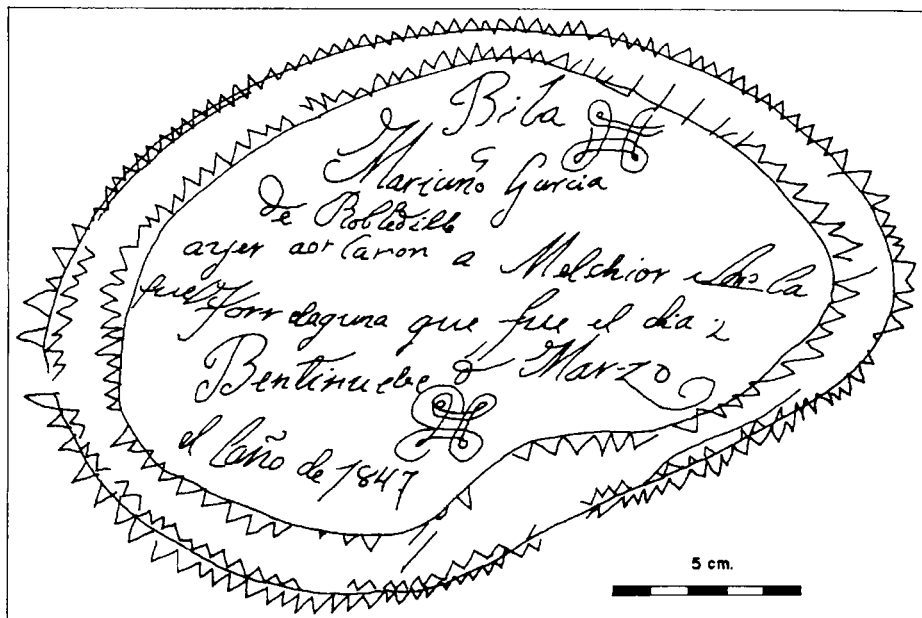 Bila
Mariano Garcia
de Robledillo
ayer aorcaron a Melchior
fue Torrelaguna que fue el dia 2
Bentinuebe d Marzo
el Caño de 1847
5 cm.